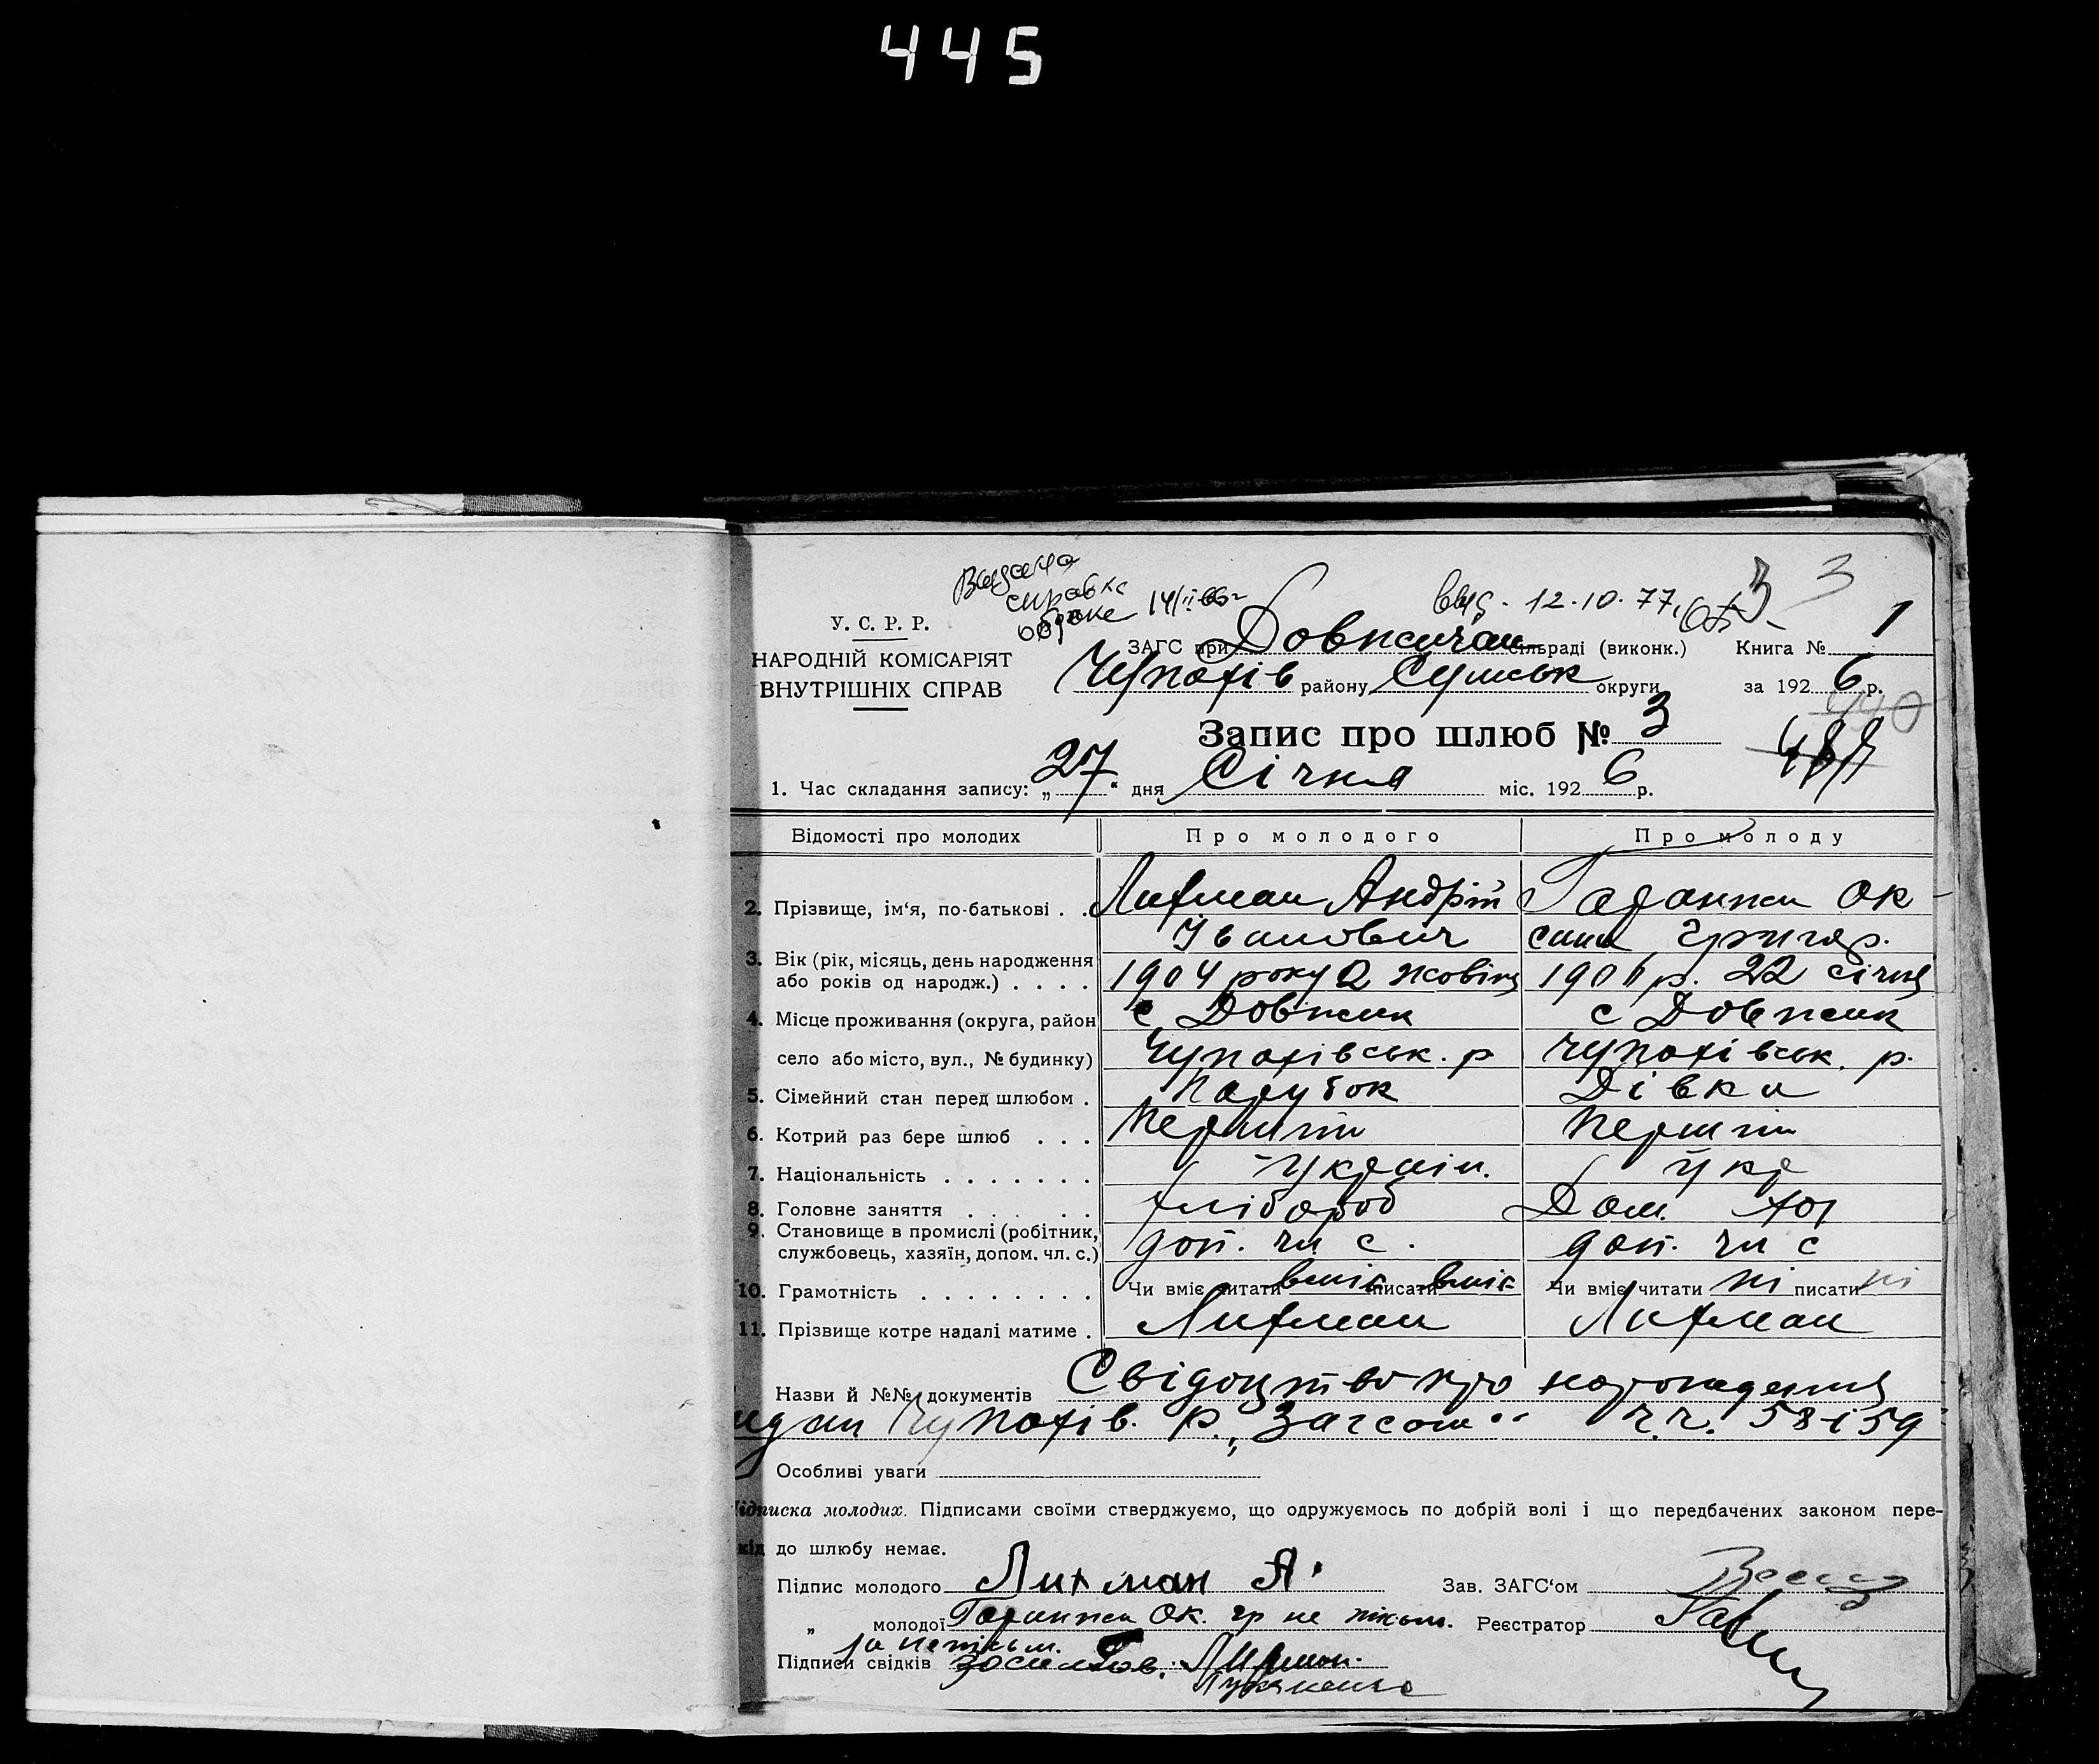 445
Видана
справка
о браке 14/II 66 г
выд. 12.10.77.
3
3
У. С. Р. Р.
НАРОДНІЙ КОМІСАРІЯТ
ВНУТРІШНІХ СПРАВ
ЗАГС при Довжичан сільраді (виконк.) Книга № 1
Чупахів району Сумськ округи за 1926 р.
Запис про шлюб № 3
1. Час складання запису: „27“ дня Січня міс. 1926 р.
Відомості про молодих Про молодого Про молоду
2. Прізвище, ім‘я, по-батькові . . Лихман Андрій Гаранжа Ок-
Іванович сана Григор.
3. Вік (рік, місяць, день народження
або років од народж.) . . . . 1904 року 2 жовтня 1906 р. 22 січня
4. Місце проживання (округа, район с. Довжик с Довжик
село або місто, вул., № будинку) Чупахівськ. р Чупахівськ. р.
5. Сімейний стан перед шлюбом . Парубок Дівка
6. Котрий раз бере шлюб . . . Перший Перший
7. Національність . . . . . . . Україн. Укр
8. Головне заняття . . . . . Хлібороб Дом. Хоз
9. Становище в промислі (робітник,
службовець, хазяїн, допом. чл. с.) доп. чл. с. доп. чл с
10. Грамотність . . . . . . . . Чи вміє читати вміє писати вміє Чи вміє читати ні писати ні
11. Прізвище котре надалі матиме . Лихман Лихман
Назви й №№ документів Свідоцтво про народження
видан Чупахів. р. „Загсом“ ч.ч. 58 і 59
Особливі уваги
Підписка молодих. Підписами своїми стверджуємо, що одружуємось по добрій волі і що передбачених законом пере-
кід до шлюбу немає.
Підпис молодого Лихман А. Зав. ЗАГС‘ом
„ молодої Гаранжа Ок. гр не письм. Реєстратор
за неписьм.
Підписи свідків Лихман.
Лукяненко